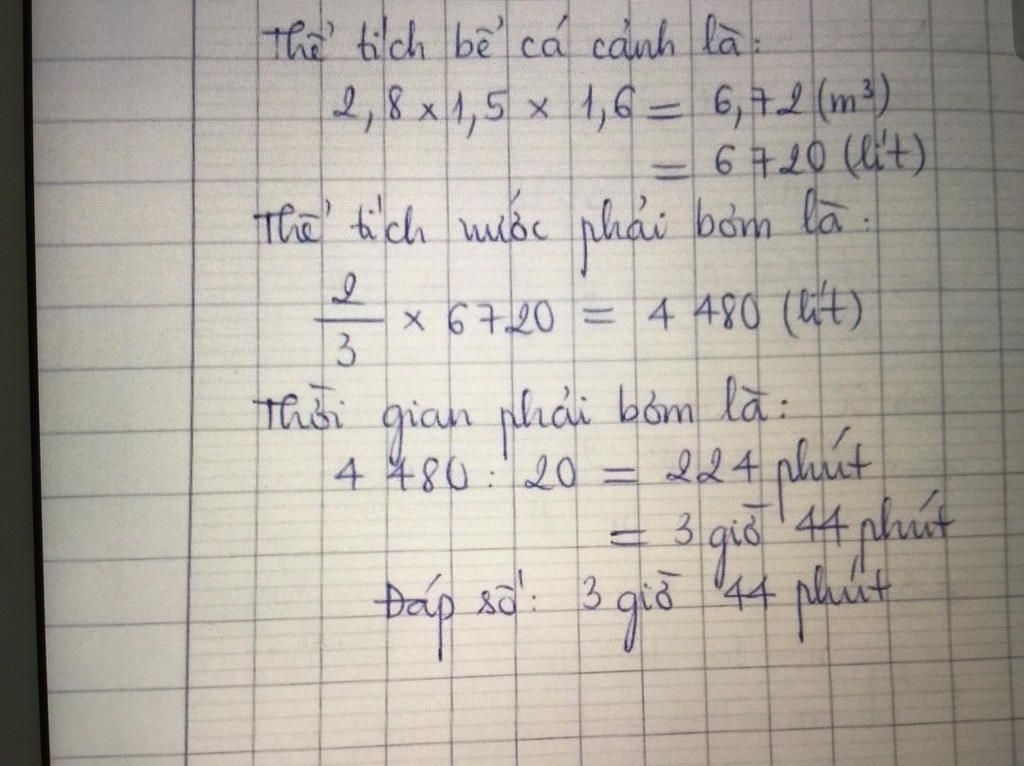 Thể tích bể cá cảnh là:
2,8 × 1,5 × 1,6 = 6,72 (m³)
= 6720 (lít)
Thể tích nước phải bơm là:
2/3 × 6720 = 4 480 (lít)
Thời gian phải bơm là:
4 480 : 20 = 224 phút
= 3 giờ 44 phút
Đáp số: 3 giờ 44 phút